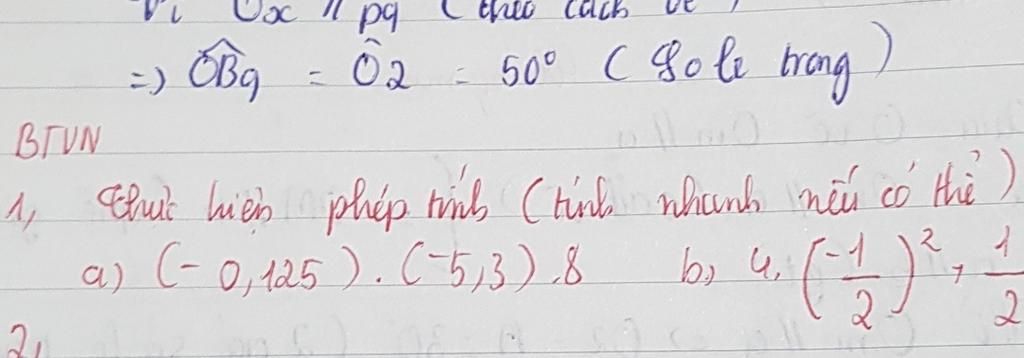 Vì Ox // pq (theo cách vẽ)
=> ÔBq = Ô2 = 50° (So le trong)
BTVN
1, Thực hiện phép tính (tính nhanh nếu có thể)
a) (-0,125) . (-5,3) .8 b, 4. (-1/2)² + 1/2
2,